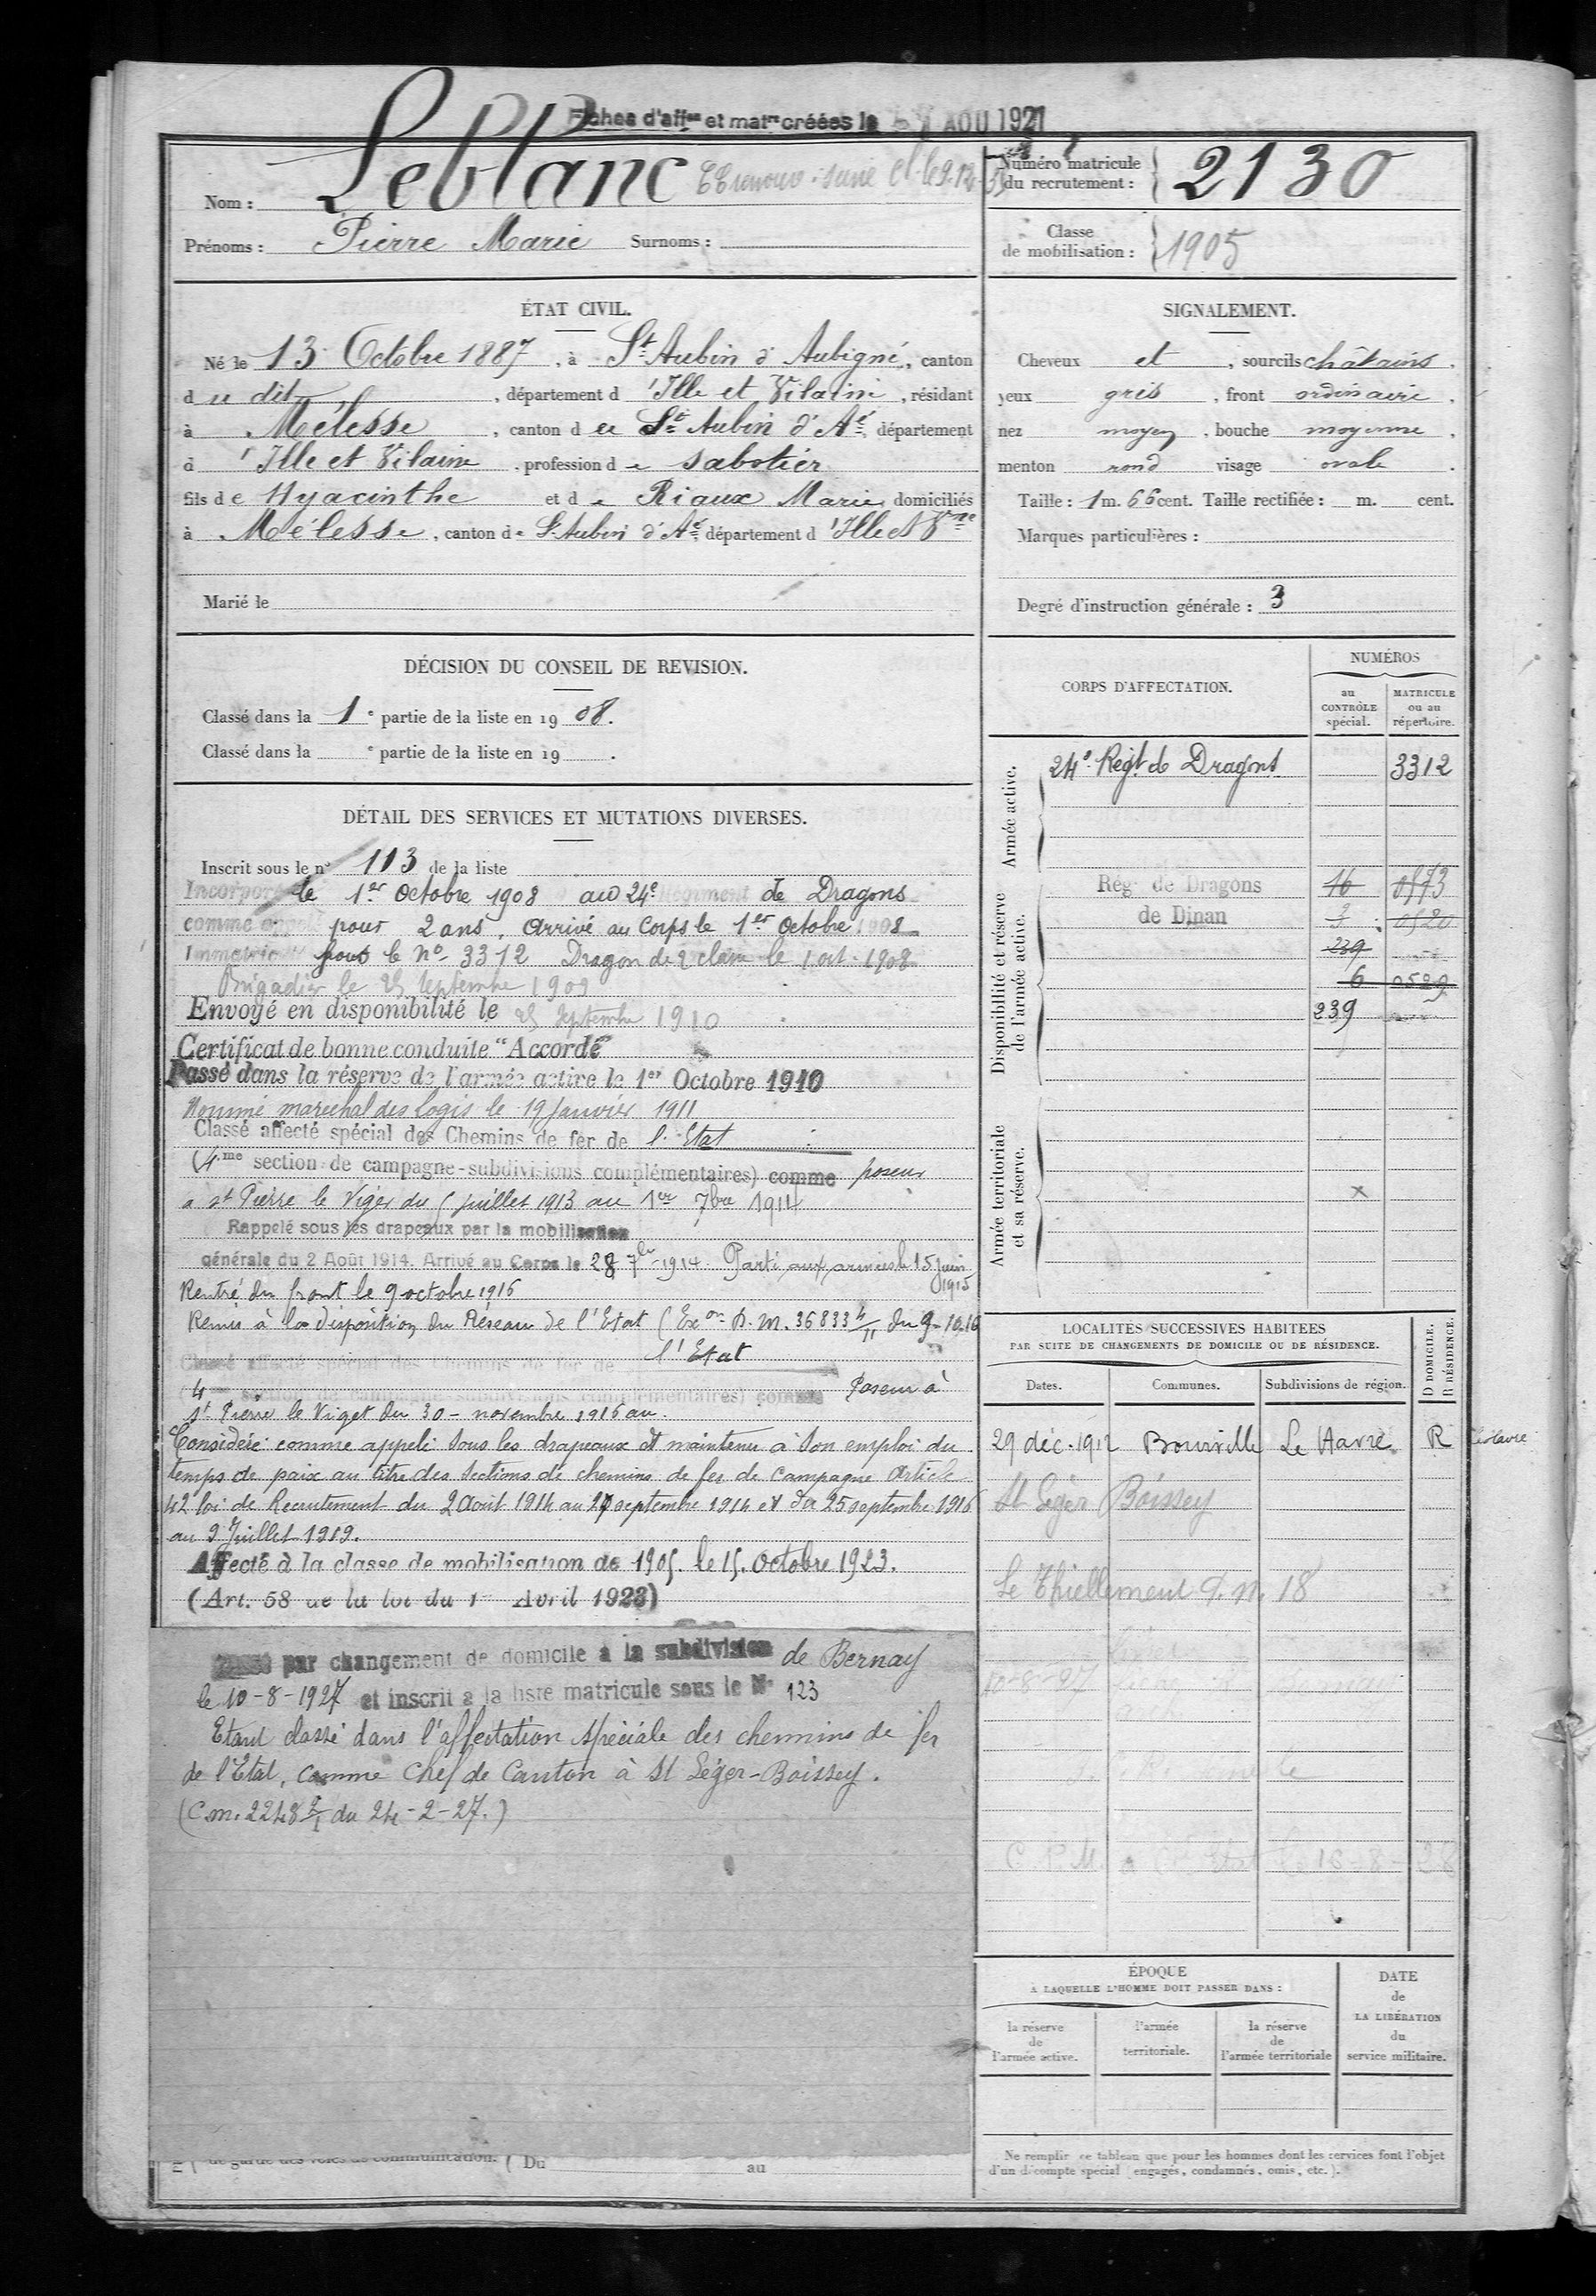 Fiches d'aff^on et mat^re créées le 1 AOU 1921
Nom : Leblanc
Numéro matricule du recrutement : 2130
Prénoms : Pierre Marie Surnoms :
Classe de mobilisation : 1905
ÉTAT CIVIL.
Né le 13 Octobre 1887, à St Aubin d'Aubigné, canton
du dit, département d'Ille et Vilaine, résidant
à Mélesse, canton de St Aubin d'Aé, département
d'Ille et Vilaine, profession de sabotier
fils de Hyacinthe et de Riaux Marie domiciliés
à Mélesse, canton de St Aubin d'Aé, département d'Ille et Vne
Marié le
SIGNALEMENT.
Cheveux et, sourcils châtains.
yeux gris, front ordinaire,
nez moyen, bouche moyenne,
menton rond visage ovale.
Taille : 1 m. 66 cent. Taille rectifiée : m. cent.
Marques particulières :
Degré d'instruction générale : 3
DÉCISION DU CONSEIL DE REVISION.
Classé dans la 1e partie de la liste en 1908.
Classé dans la e partie de la liste en 19 .
DÉTAIL DES SERVICES ET MUTATIONS DIVERSES.
Inscrit sous le n° 113 de la liste
Incorporé le 1er Octobre 1908 au 24e Régiment de Dragons
comme pour 2 ans, Arrivé au Corps le 1er Octobre 1908
sous le No 3312 Dragon de 2 classe le 1 oct. 1908
Brigadier le 25 Septembre 1909
Envoyé en disponibilité le 25 septembre 1910
Certificat de bonne conduite "Accordé"
Passé dans la réserve de l'armée active le 1er Octobre 1910
Nommé maréchal des logis le 19 Janvier 1911
Classé affecté spécial des Chemins de fer de l'Etat
(4me section de campagne-subdivisions complémentaires) comme poseur
a St Pierre le Viger du 5 juillet 1913 au 1er 7bre 1914
Rappelé sous les drapeaux par la mobilisation
générale du 2 Août 1914. Arrivé au Corps le 28 7bre 1914 Parti aux armées le 15 Juin 1915
Rentré du front le 9 octobre 1916
Remis à la disposition du Réseau de l'Etat (Exon D.M. 36833 4/11 du 9-10.16
Classé affecté spécial des chemins de fer de l'Etat
4me section de campagne-subdivisions complémentaires) comme Poseur à
St Pierre le Viget du 30 - novembre 1916 au
Considéré comme appelé sous les drapeaux et maintenu à son emploi du
temps de paix au titre des sections de chemins de fer de campagne Article
42 loi de Recrutement du 2 Août 1914 au 27 septembre 1914 et du 25 septembre 1916
au 9 Juillet 1919.
Affecté à la classe de mobilisation de 1905. le 15. Octobre 1923.
(Art. 58 de la loi du 1er Avril 1923)
par changement de domicile a la subdivision de Bernay
le 10-8-1927 et inscrit a la liste matricule sous le No 123
Etant classé dans l'affectation spéciale des chemins de fer
de l'Etat, comme Chef de Canton à St Léger-Boissey.
(C.m. 2248 du 24-2-27.)
de garde des voies de communication. Du au
CORPS D'AFFECTATION.
NUMÉROS
au CONTRÔLE spécial.
MATRICULE ou au répertoire.
Armée active.
24e Régt de Dragons 3312
Disponibilité et réserve de l'armée active.
Rég de Dragons 16 0573
de Dinan 3 0520
239
6 0529
239
Armée territoriale et sa réserve.
x
LOCALITÉS SUCCESSIVES HABITÉES
PAR SUITE DE CHANGEMENTS DE DOMICILE OU DE RÉSIDENCE.
D DOMICILE.
R RÉSIDENCE.
Dates. Communes. Subdivisions de région.
29 déc. 1912 Bourville Le Havre R
St Léger Boissey
10-8-27
ÉPOQUE
A LAQUELLE L'HOMME DOIT PASSER DANS :
la réserve de l'armée active.
l'armée territoriale.
la réserve de l'armée territoriale
DATE de LA LIBÉRATION du service militaire.
Ne remplir ce tableau que pour les hommes dont les services font l'objet
d'un décompte spécial (engagés, condamnés, omis, etc.).